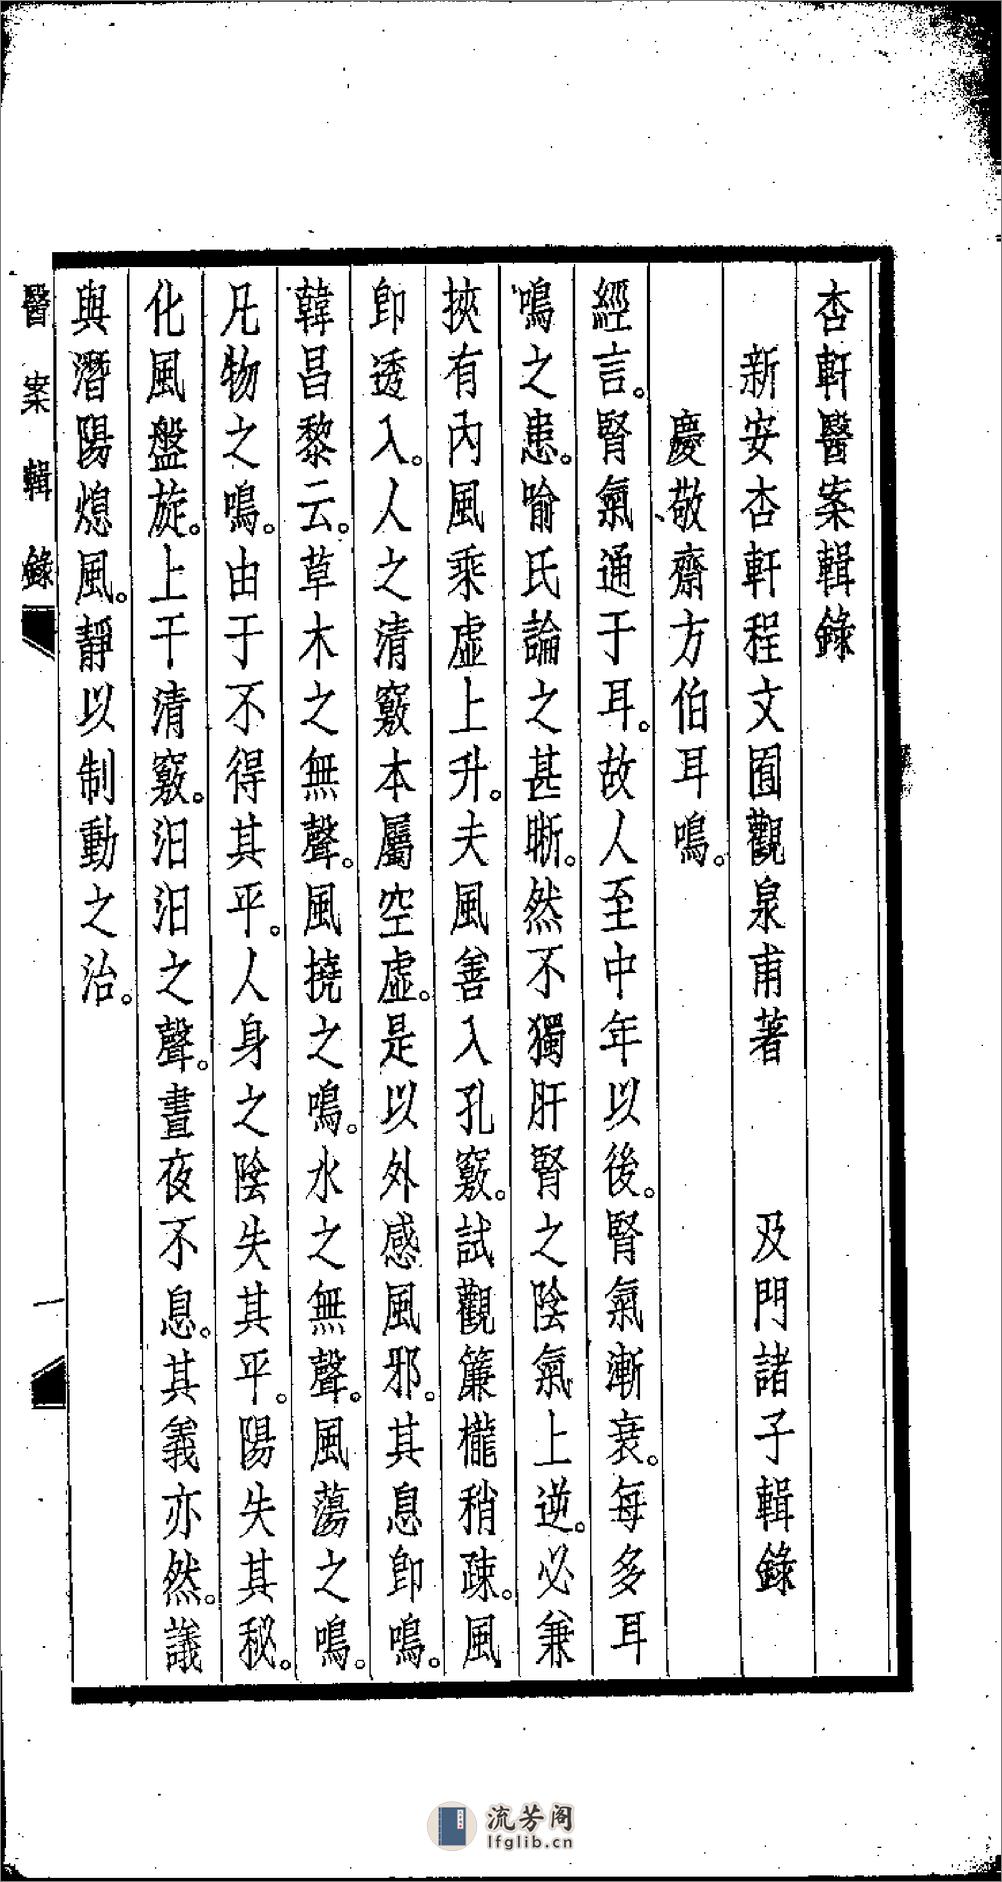 杏軒醫案輯錄
新安杏軒程文囿觀泉甫著　及門諸子輯錄
慶敬齋方伯耳鳴。
經言。腎氣通于耳。故人至中年以後。腎氣漸衰。每多耳
鳴之患。喻氏論之甚晰。然不獨肝腎之陰氣上逆。必兼
挾有內風乘虛上升。夫風善入孔竅。試觀簾櫳稍疎。風
卽透入。人之清竅本屬空虛。是以外感風邪。其息卽鳴。
韓昌黎云。草木之無聲。風撓之鳴。水之無聲。風蕩之鳴。
凡物之鳴。由于不得其平。人身之陰失其平。陽失其秘。
化風盤旋。上干清竅。汨汨之聲。晝夜不息。其義亦然。議
與潛陽熄風。靜以制動之治。
醫案輯錄
一
流芳阁
lfglib.cn